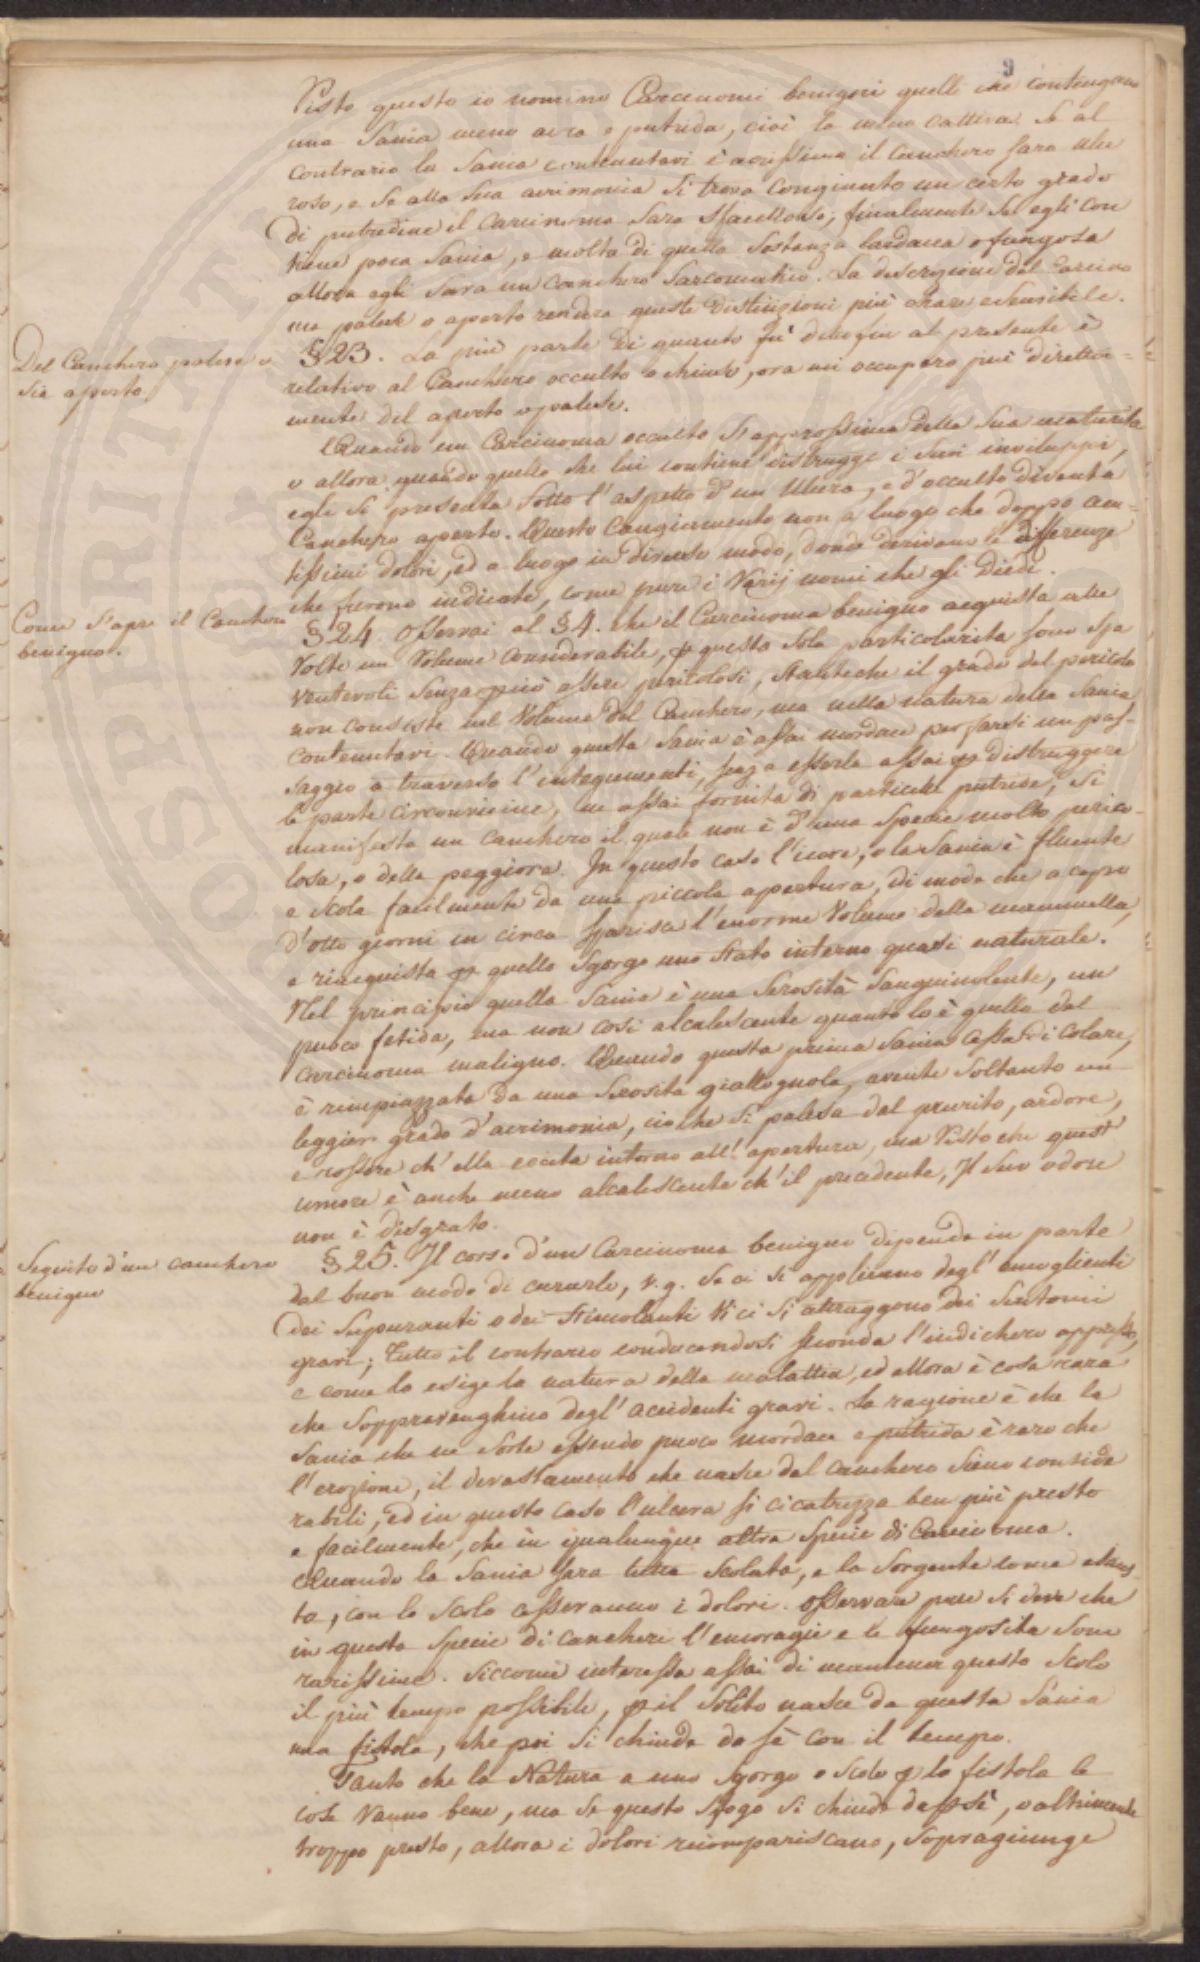 9
Visto questo io nomino Carcinomi benigni quelli che contengono
una Sania meno acra e putrida, cioè la meno cattiva. Se al
contrario la Sania contenutavi è acrissima il Canchero sara ulce
roso, e se alla sua acrimonia si trova Congiunto un certo grado
di putredine il Carcinoma sara Sfacelloso; finalmente se egli con
tiene poca Sania, e molta di quella Sostanza lardacea o fungosa
allora egli sara un Canchero Sarcomatico. La descrizione del Carcino
ma palese o aperto rendera queste distinzioni più chiare e sensibili.
Del Canchero palese o
sia aperto
§ 23. La più parte di quanto fù detto fin al presente è
relativo al Canchero occulto o chiuso, ora mi occuperò più diretta=
mente del aperto o palese.
Quando un Carcinoma occulto s'approssima della sua maturità
o allora quando quello che lui contiene distrugge i suoi inviluppi,
egli si presenta sotto l'aspetto d'un Ulcera, e d'occulto diventa
Canchero aperto. Questo Cangiamento non a luogo che doppo acu=
tissimi dolori, ed a luogo in diverso modo, donde derivano le differenze
che furono indicate, come pure i Varij nomi che gli diedi.
Come s'apre il Canchero
benigno.
§ 24. Osservai al § 4. che il Carcinoma benigno acquista alle
Volte un Volume Considerabile, p questa sola particolarita sono spa
ventevoli senza più essere pericolosi, stanteche il grado del pericolo
non consiste nel Volume del Canchero, ma nella natura della Sania
contenutavi. Quando questa Sania è assai mordace per farsi un pas=
saggio a traverso l'integumenti, senza esserlo assai p distruggere
le parte circonvicine, ne assai fornita di particelle putride, si
manifesta un canchero il quale non è d'una Specie molto perico=
losa, o della peggiora. In questo caso l'icore, o la Sania è fluente
e scola facilmente da una piccola apertura, di modo che a capo
d'otto giorni in circa sparisce l'enorme Volume della mammella,
e riacquista p quello sgorgo uno stato interno quasi naturale.
Nel principio quella Sania è una Serosità Sanguinolente, un
puoco fetida, ma non così alcalescente quanto lo è quella del
Carcinoma maligno. Quando questa prima Sania cessa di colare,
è rimpiazzata da una Serosita giallognola, avente soltanto un
leggier grado d'acrimonia, ciò che si palesa dal prurito, ardore,
e rossore ch'ella eccita intorno all'apertura, ma Visto che quest'
umore è anche meno alcalescente ch'il precedente, Il suo odore
non è disgrato.
Seguito d'un canchero
benigno
§ 25. Il corso d'un Carcinoma benigno dipende in parte
dal buon modo di curarlo, v. g. Se ci si applicano degl'emoglienti
dei Supuranti o dei Stimolanti Vi ci si attraggono dei Sintomi
gravi; Tutto il contrario conducendosi secondo l'indichero appresso,
e come lo esige la natura della malattia, ed allora è cosa rara
che Sopprevenghino degl'accidenti gravi. La ragione è che la
Sania che ne Sorte essendo puoco mordace e putrida è raro che
l'erozione, il devastamento che nasce dal canchero sieno conside
rabili, ed in questo caso l'ulcera si cicatrizza ben più presto
e facilmente, che in qualunque altra Specie di Carcinoma.
Quando la Sania sara tutta scolata, e la Sorgente come esaus=
ta, con lo Scolo cesseranno i dolori. Osservare pure si deve che
in questa Specie di cancheri l'emoragie e le fungosita sono
rarissime. Siccome interessa assai di mantener questo Scolo
il più tempo possibile, p il Solito nasce da questa Sania
una fistola, che poi si chiude da sè con il tempo.
Tanto che la Natura a uno sgorgo o scolo p la fistola le
cose Vanno bene, ma se questo sfogo si chiude da p sè, o altrimente
troppo presto, allora i dolori ricompariscano, sopragiunge